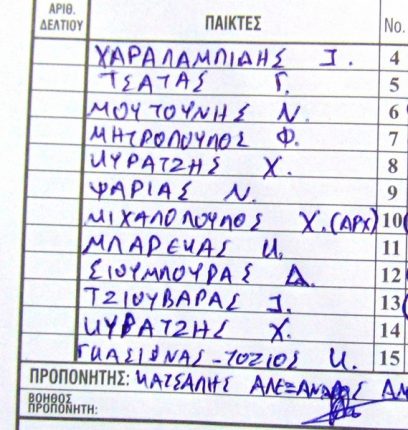 ΑΡΙΘ. ΔΕΛΤΙΟΥ ΠΑΙΚΤΕΣ No.
ΧΑΡΑΛΑΜΠΙΔΗΣ Ι. 4
ΤΣΑΤΑΣ Γ. 5
ΜΟΥΤΟΥΝΗΣ Ν. 6
ΜΗΤΡΟΠΟΥΛΟΣ Φ. 7
ΚΥΡΑΤΖΗΣ Χ. 8
ΨΑΡΙΑΣ Ν. 9
ΜΙΧΑΛΟΠΟΥΛΟΣ Χ. (ΑΡΧ) 10
ΜΠΑΡΕΚΑΣ Κ. 11
ΣΙΟΥΜΠΟΥΡΑΣ Δ. 12
ΤΖΙΟΥΒΑΡΑΣ Ι. 13
ΚΥΡΑΤΖΗΣ Χ. 14
ΓΚΑΣΙΩΝΑΣ-ΤΟΖΙΟΣ Κ. 15
ΠΡΟΠΟΝΗΤΗΣ: ΚΑΤΣΑΛΗΣ ΑΛΕΞΑΝΔΡΟΣ
ΒΟΗΘΟΣ ΠΡΟΠΟΝΗΤΗ: